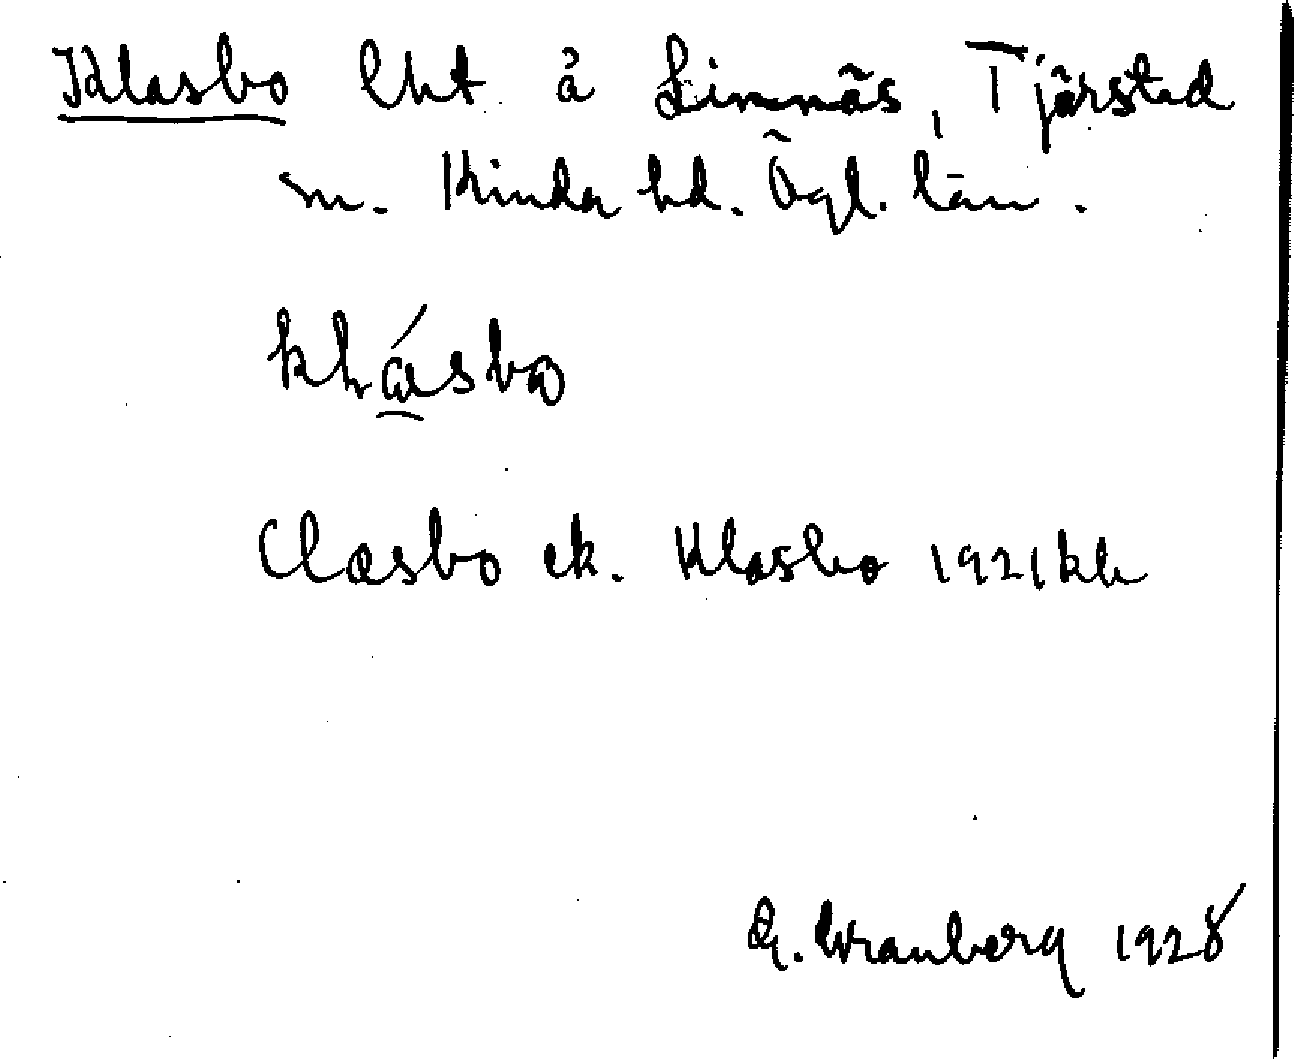 Klasbo lht å Limnäs, Tjärstad
sn. Kinda hd. Ögl. län.
klásbo
Clasbo ek. Klasbo 1921 kb
G. Franberg 1928